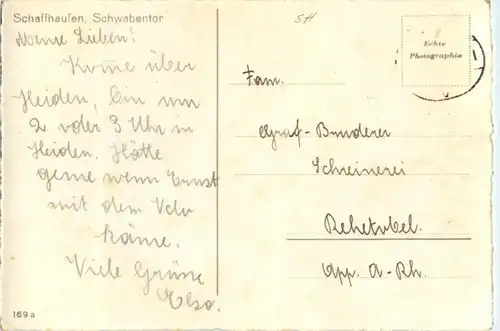 Schaffhausen, Schwabentor
Meine Lieben!
Komme über
Heiden, bin um
2 oder 3 Uhr in
Heiden. Hätte
gerne wenn Ernst
mit dem Velo
käme.
Viele Grüsse
Elso.
169a
SH
Echte
Photographie
Fam.
Graf-Bänderer
Schreinerei
Rehetobel.
App. A-Rh.